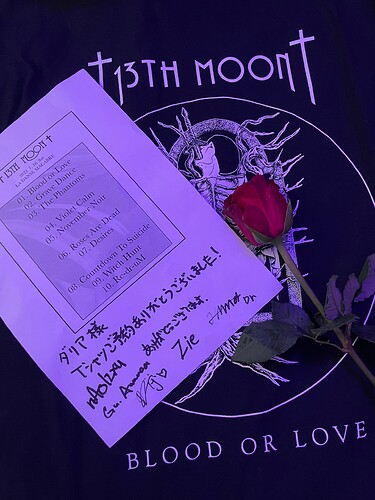 †13TH MOON†
†13TH MOON†
LA DANSE MACABRE
01. Blood or Love
02. Grave Dance
03. The Phantoms
04. Violet Calm
05. November Noir
06. Roses Are Dead
07. Desires
08. Countdown To Suicide
09. Witch Hunt
ダリア様
Tシャツご予約ありがとうございました!
ありがとうございます。
Zie
Dr.
BLOOD OR LOVE